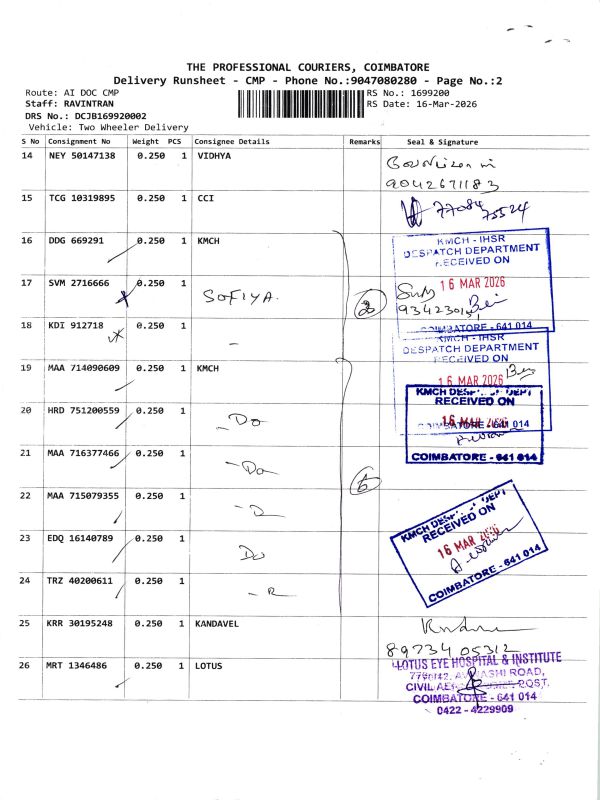 THE PROFESSIONAL COURIERS, COIMBATORE
Delivery Runsheet - CMP - Phone No.:9047080280 - Page No.:2
Route: AI DOC CMP
RS No.: 1699200
Staff: RAVINTRAN
RS Date: 16-Mar-2026
DRS No.: DCJB169920002
Vehicle: Two Wheeler Delivery
S No Consignment No Weight PCS Consignee Details Remarks Seal & Signature
14 NEY 50147138 0.250 1 VIDHYA
9042671183
15 TCG 10319895 0.250 1 CCI
77084 75524
16 DDG 669291 0.250 1 KMCH
KMCH - IHSR
DESPATCH DEPARTMENT
RECEIVED ON
17 SVM 2716666 0.250 1 SOFIYA.
16 MAR 2026
COIMBATORE - 641 014
18 KDI 912718 0.250 1 -
KMCH - IHSR
DESPATCH DEPARTMENT
RECEIVED ON
19 MAA 714090609 0.250 1 KMCH
16 MAR 2026
COIMBATORE - 641 014
20 HRD 751200559 0.250 1 - Do
KMCH DESP DEPT
RECEIVED ON
16 MAR 2026
COIMBATORE - 641 014
21 MAA 716377466 0.250 1 - Do
22 MAA 715079355 0.250 1
6
23 EDQ 16140789 0.250 1 Do
KMCH DESP DEPT
RECEIVED ON
16 MAR 2026
COIMBATORE - 641 014
24 TRZ 40200611 0.250 1
25 KRR 30195248 0.250 1 KANDAVEL
89734 05312
26 MRT 1346486 0.250 1 LOTUS
LOTUS EYE HOSPITAL & INSTITUTE
ROAD,
CIVIL POST.
COIMBATORE - 641 014
0422 - 4229909